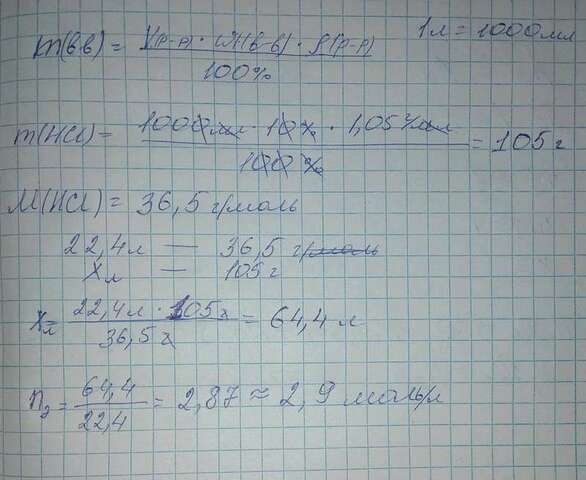 m(в-в) = V(р-р) · W(в-в) · ρ(р-р) / 100%
1л = 1000мл
m(HCl) = 1000мл · 10% · 1,05 г/мл / 100% = 105 г
M(HCl) = 36,5 г/моль
22,4л — 36,5 г/моль
Xл — 105 г
Xл = 22,4л · 105 г / 36,5 г = 64,4 л
n₂ = 64,4 / 22,4 = 2,87 ≈ 2,9 моль/л